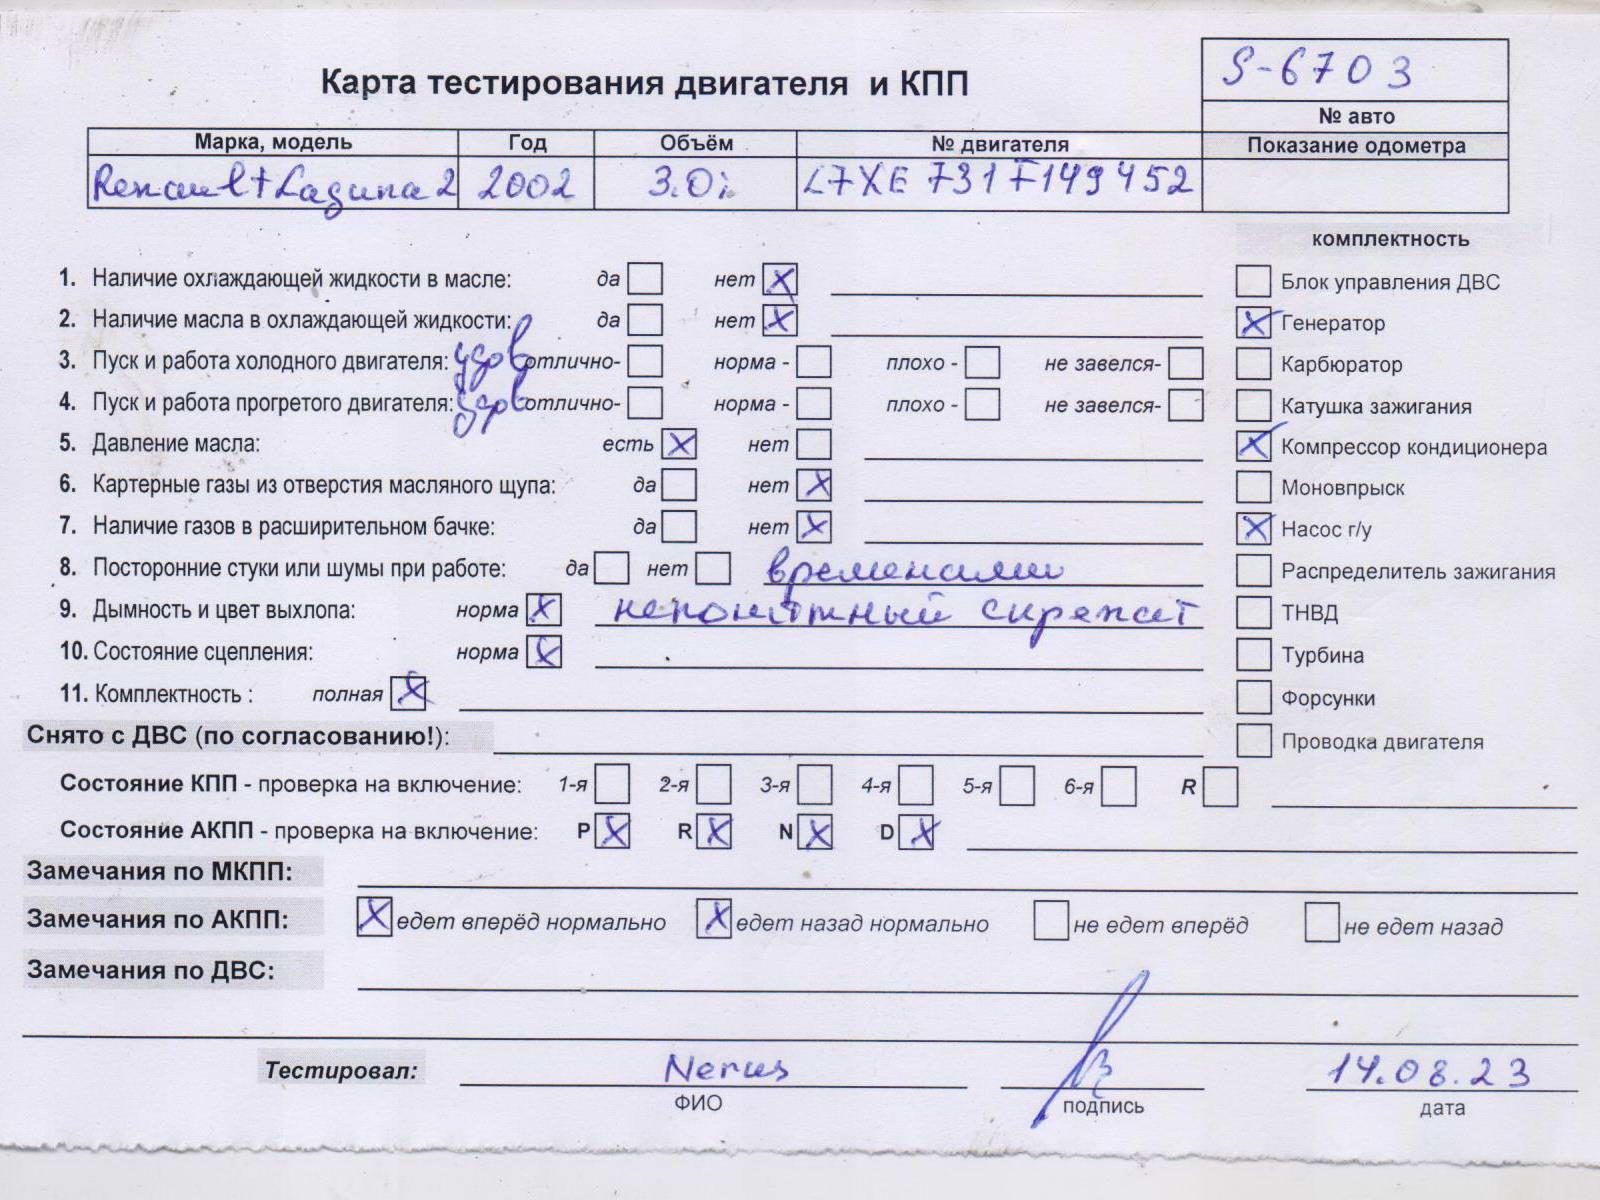 S-6703
Карта тестирования двигателя и КПП
№ авто
Марка, модель Год Объём № двигателя Показание одометра
Renault Laguna 2 2002 3.0i L7XE 731 F149452
комплектность
1. Наличие охлаждающей жидкости в масле: да нет X Блок управления ДВС
2. Наличие масла в охлаждающей жидкости: да нет X X Генератор
3. Пуск и работа холодного двигателя: удов отлично- норма - плохо - не завелся- Карбюратор
4. Пуск и работа прогретого двигателя: удов отлично- норма - плохо - не завелся- Катушка зажигания
5. Давление масла: есть X нет X Компрессор кондиционера
6. Картерные газы из отверстия масляного щупа: да нет X Моновпрыск
7. Наличие газов в расширительном бачке: да нет X X Насос г/у
8. Посторонние стуки или шумы при работе: да нет временами Распределитель зажигания
9. Дымность и цвет выхлопа: норма X непонятный скрежет ТНВД
10. Состояние сцепления: норма X Турбина
11. Комплектность : полная X Форсунки
Снято с ДВС (по согласованию!): Проводка двигателя
Состояние КПП - проверка на включение: 1-я 2-я 3-я 4-я 5-я 6-я R
Состояние АКПП - проверка на включение: P X R X N X D X
Замечания по МКПП:
Замечания по АКПП: X едет вперёд нормально X едет назад нормально не едет вперёд не едет назад
Замечания по ДВС:
Тестировал: 14.08.23
ФИО подпись дата